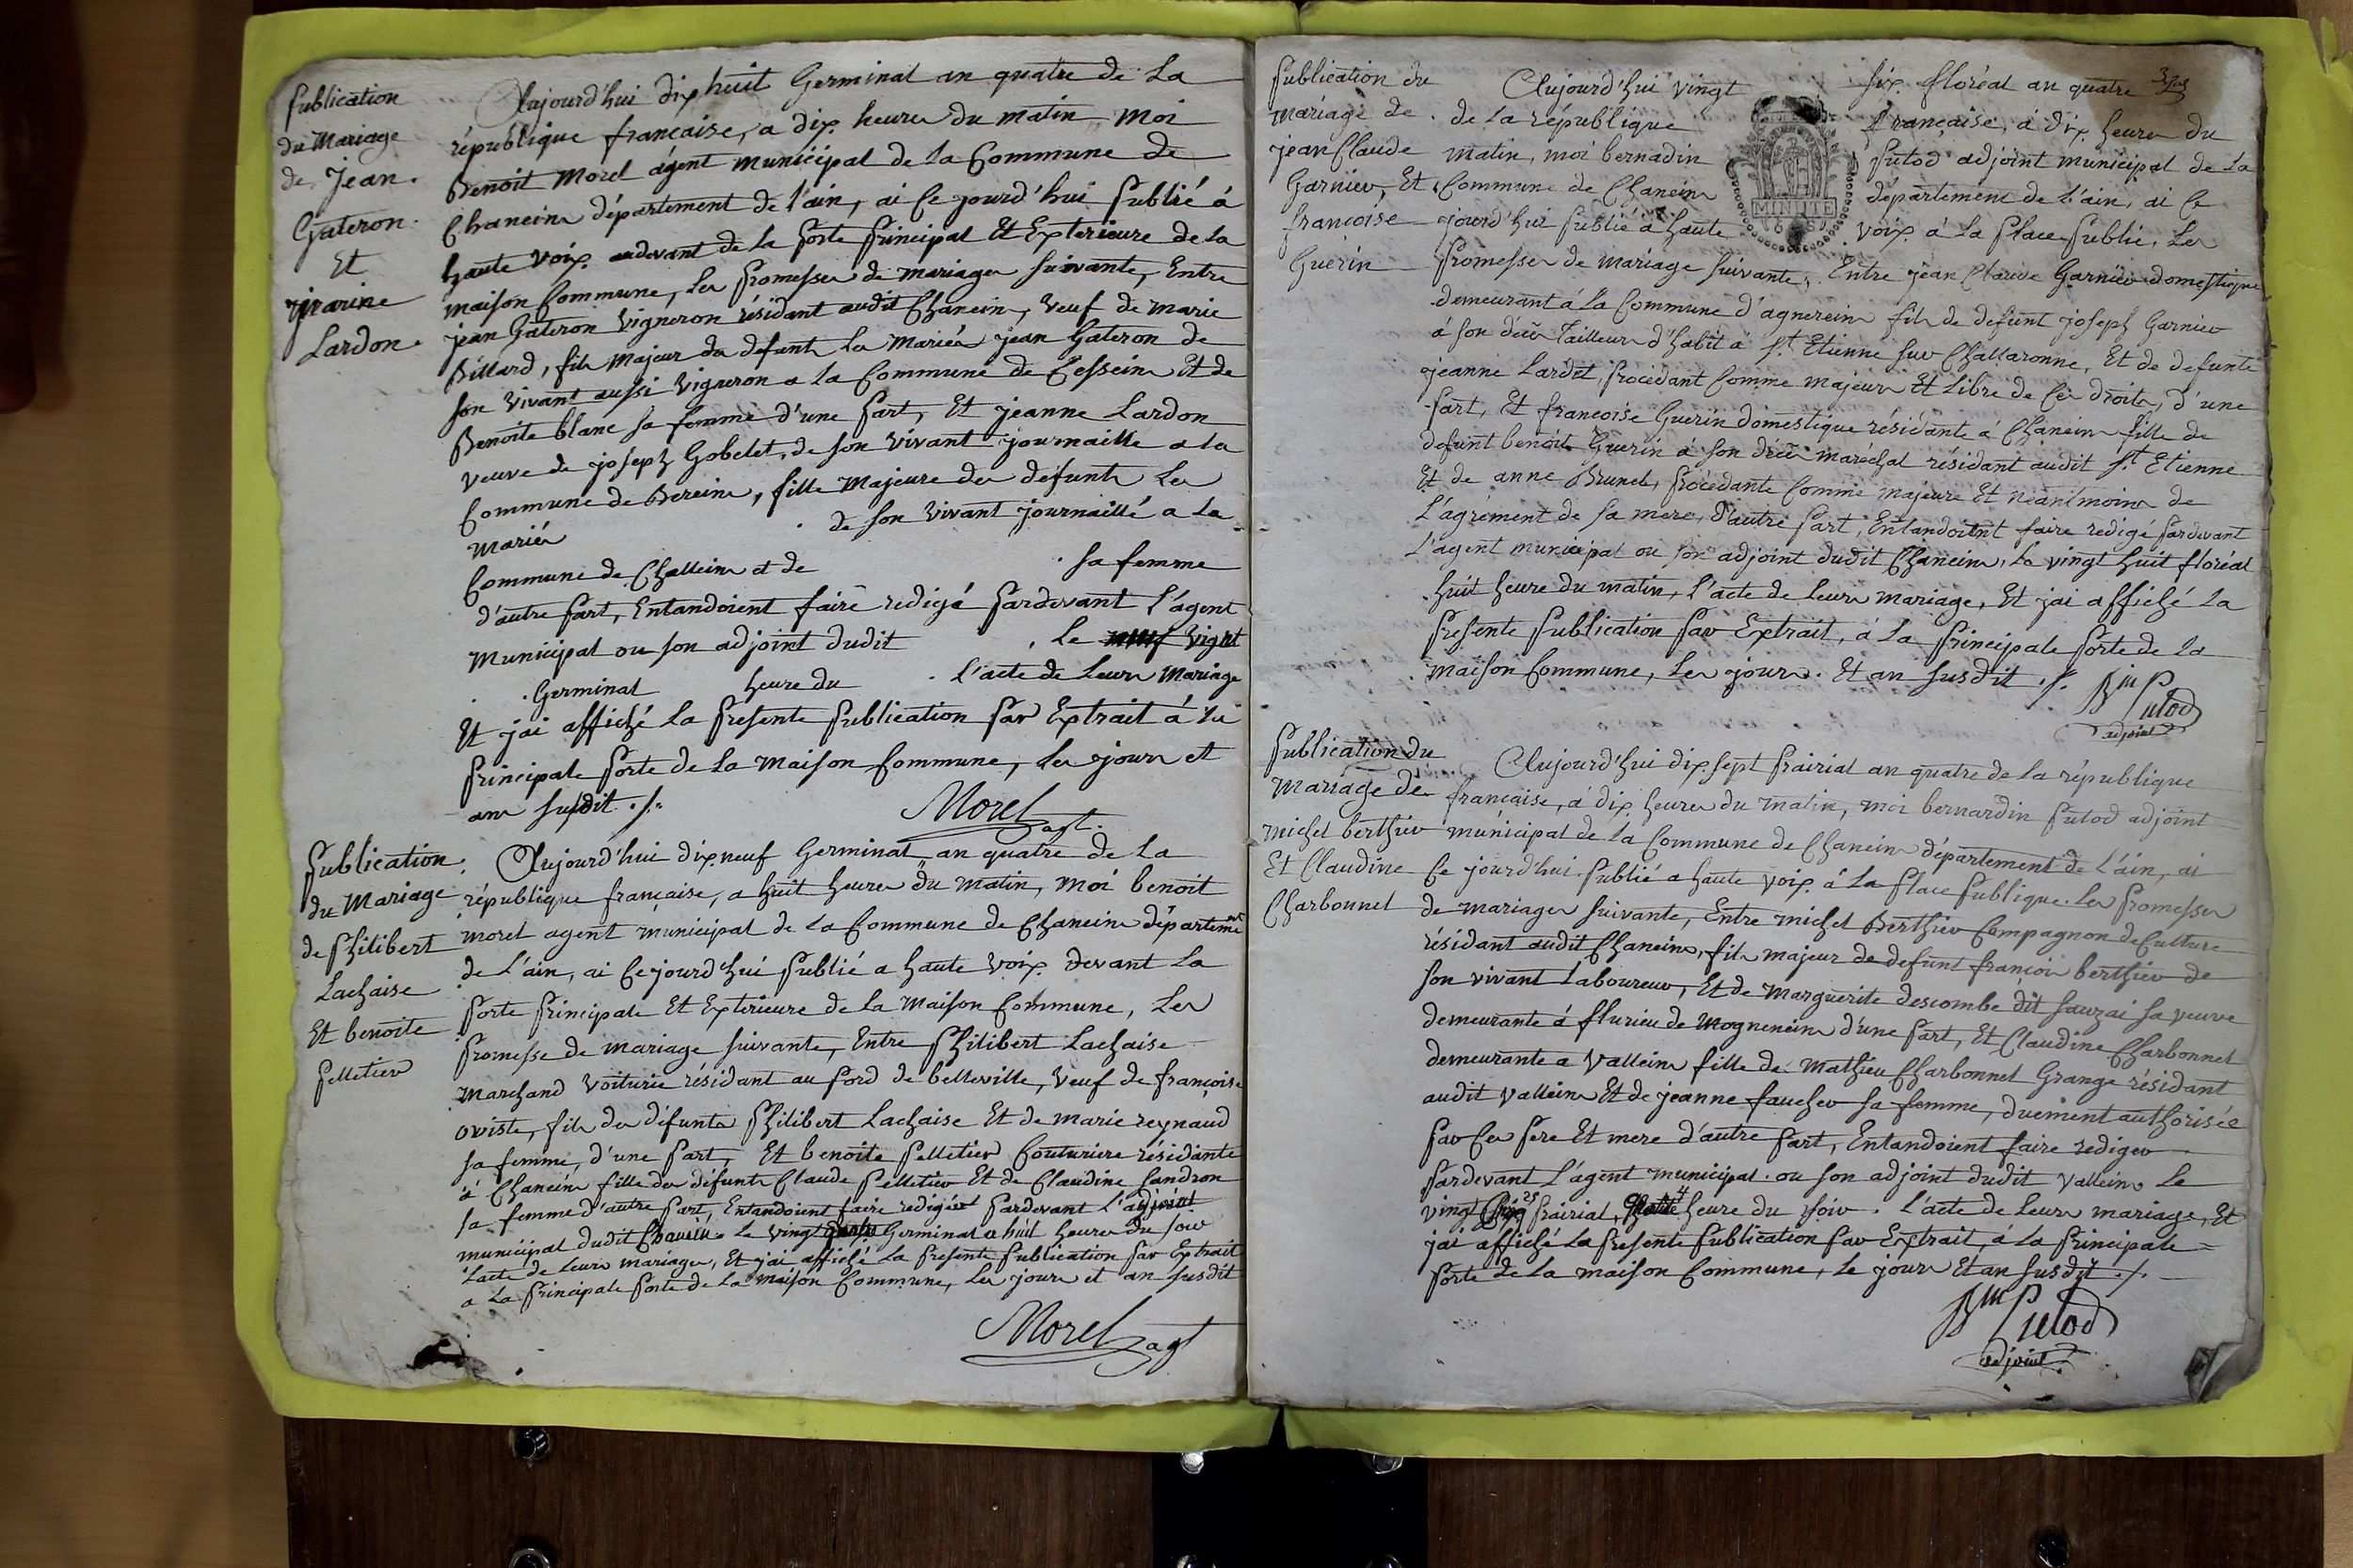 Publication
du Mariage
de Jean
Gateron
Et
Lardon
Aujourd'hui dix huit Germinal an quatre de La
république française, a dix heures du matin moi
Benoit Morel agent municipal de la Commune de
Chaneins département de l'ain, ai Ce jourd'hui Publié à
haute voix audevant de La Porte Principal Et Exterieure de La
maison Commune, Les Promesses de mariages suivante, Entre
jean Gateron Vigneron résidant audit Chaneins, Veuf de marie
Billard, fils majeur des defunts Les mariés jean Gateron de
son vivant aussi Vigneron a La Commune de Cesseins Et de
Benoite blanc sa femme d'une Part, Et jeanne Lardon
veuve de joseph Gobelet, de son vivant journaille a La
Commune de Bereins, fille majeure des defunts Les
mariés de son vivant journaillé a La
Commune de Challeins et de sa femme
d'autre Part, Entandoient faire redigé Pardevant l'agent
municipal ou son adjoint dudit Le vignt
Germinal heure du l'acte de Leurs Mariage
Et jai affiché La Presente Publication Par Extrait à La
Principale Porte de La maison Commune, Les jours et
ans susdit ./.
Morel agt.
Publication
du Mariage
de Philibert
Lachaise
Et benoite
Pelletier
Aujourd'hui dix neuf Germinal an quatre de La
république française, a huit heures du matin, moi benoit
morel agent municipal de La Commune de Chaneins département
de L'ain, ai Ce jourd'hui Publié a haute voix devant La
Porte Principale Et Exterieure de La Maison Commune, Les
Promesse de mariage suivante, Entre Philibert Lachaise
Marchand Voiturie résidant au Pord de belleville, Veuf de françoise
oviste, fils des défunts Philibert Lachaise Et de marie reynaud
sa femme, d'une Part, Et benoite Pelletier Couturiere résidante
à Chaneins fille des défunts Claude Pelletier Et de Claudine Candron
sa femme d'autre Part, Entandoient faire redigér Pardevant L'adjoint
municipal dudit Chaneins Le vingt Germinal a huit heures du soir
L'acte de Leurs mariages, Et j'ai affiché La Presente Publication Par Extrait
a La Principale Porte de La maison Commune, Les jours et an susdit
Morel agt
Publication du
mariage de
jean Claude
Garnier, Et
francoise
Guerin
Aujourd'hui vingt six floréal an quatre
de La république française, à dix heures du
matin, moi bernadin Putod adjoint municipal de La
Commune de Chaneins département de L'ain, ai Ce
jourd'hui Publié à haute voix à La Place Public, Les
Promesses de mariage suivante, Entre jean Claude Garnier domestique
demeurant à La Commune d'agnereins fils de defunt joseph Garnier
à son décès Tailleur d'habit à St. Etienne sur Challaronne, Et de defunte
jeanne Lardet, Procédant Comme majeur Et Libre de Ces droits, d'une
Part, Et francoise Guerin domestique résidante à Chaneins fille de
defunt benoit Guerin à son décès maréchal résidant audit St. Etienne
Et de anne Brunet, Procédante Comme majeure Et néantmoins de
L'agrément de sa mere, d'autre Part, Entandoient faire redigé Pardevant
L'agent municipal ou son adjoint dudit Chaneins, Le vingt huit floréal
huit heure du matin, L'acte de Leurs mariage, Et jai affiché La
Presente Publication Par Extrait, à La Principale Porte de La
maison Commune, Les jours Et an susdit ./.
Bin Putod
adjoint
MINUTE
Publication du
Mariage de
michel berthier
Et Claudine
Charbonnet
Aujourd'hui dix sept Prairial an quatre de La république
française, à dix heures du matin, moi bernardin Putod adjoint
municipal de La Commune de Chaneins département de L'ain, ai
Ce jourd'hui Publié a haute voix à La Place Publique Les Promesses
de mariages suivante, Entre michel Berthier Compagnon de Culture
résidant audit Chaneins, fils majeur de defunt françois berthier de
son vivant Laboureur, Et de marguerite descombe dit sauzai sa veuve
demeurante à flurieu de Mogneneins d'une Part, Et Claudine Charbonnet
demeurante a Valleins fille de Mathieu Charbonnet Grange résidant
audit Valleins Et de jeanne faucher sa femme, duement authorisée
Par Ces Pere Et mere d'autre Part, Entandoient faire rediger
Pardevant L'agent municipal ou son adjoint dudit Valleins Le
vingt Cinq 25 Prairial, 4 heure du soir L'acte de Leurs mariage, Et
jai affiché La Presente Publication Par Extrait, à La Principale
Porte de La maison Commune, Le jours Et an susdit ./.
Bin Putod
adjoint